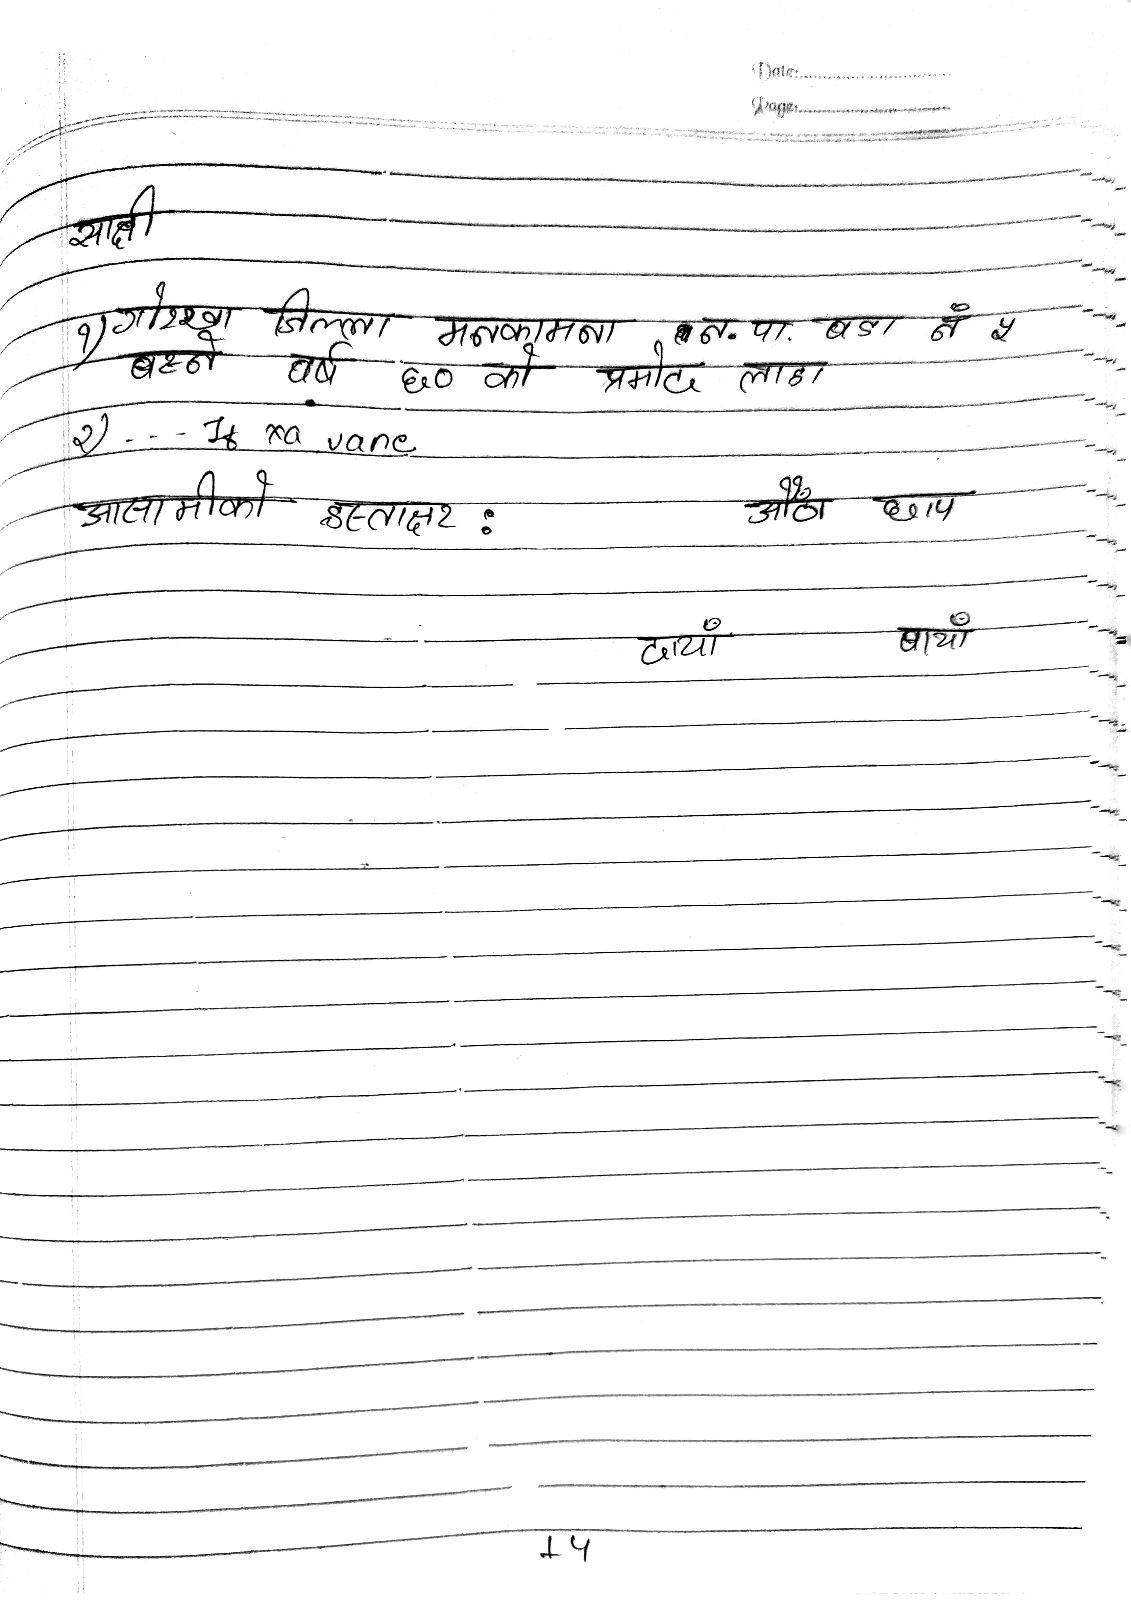 Date:
Page:
साक्षी
१) गोरखा जिल्ला मनकामना न.पा. वडा नं ५
बस्ने वर्ष ६० को प्रमोद लाडा
२) --- If xa vane
आसामीको हस्ताक्षर : औंठा छाप
दायाँ बायाँ
14